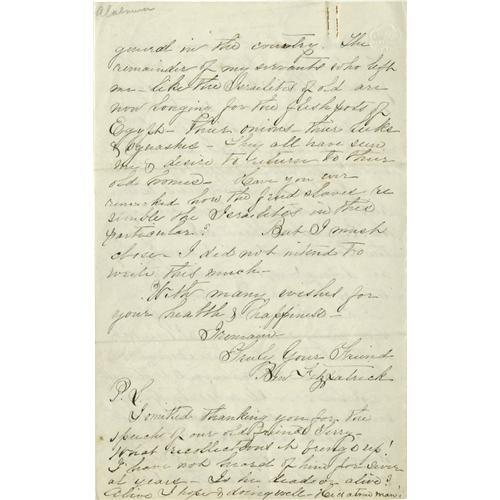 Alabama
general in the country. The
remainder of my servants who left
me - like the Israelites of old are
now longing for the flesh pods of
Egypt - their onions - their leeks
& squashes - They all have seen
me & desire to return to their
old homes - Have you ever
remarked how the freed slaves re
semble the Israelites in this
particular? But I must
close. I did not intend to
write this much -
With many wishes for
your health & happiness -
I remain
Truly Your Friend
Ben Fitzpatrick
P.S.
I omitted thanking you for the
speech of our old friend Perry
What recollections it brings up!
I have not heard of him for
years - Is he dead or alive?
alive I hope & doing well -